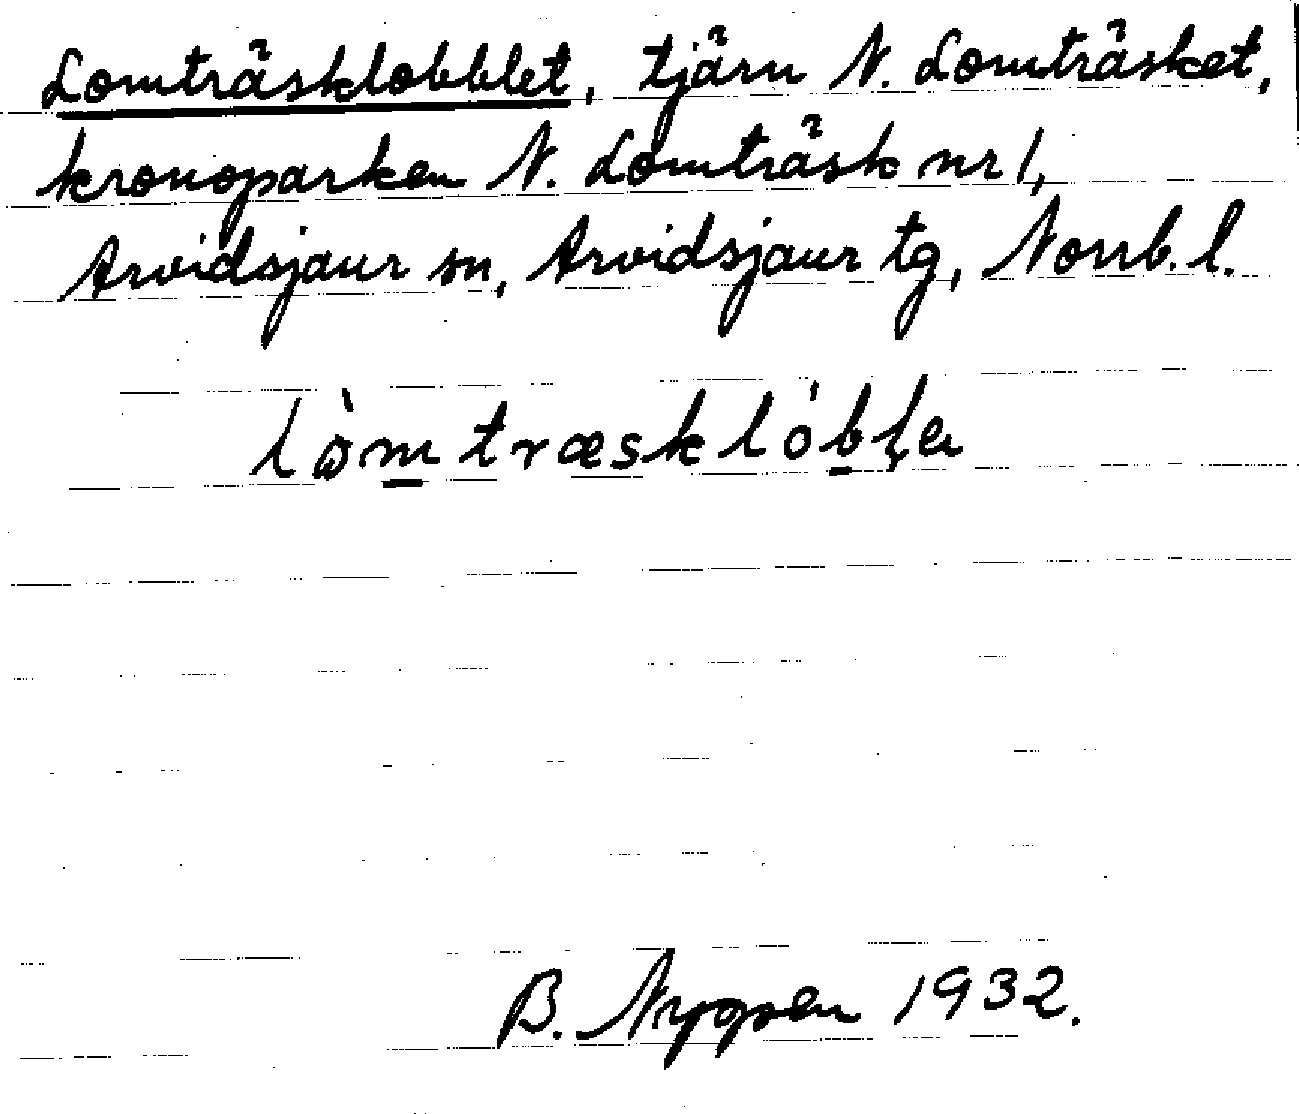 Lomträsklobblet, tjärn N. Lomträsket,
kronoparken N. Lomträsk nr 1,
Arvidsjaur sn, Arvidsjaur tg, Norrb. l.
lò̀m træsk lóbļe
B. Nygren 1932.